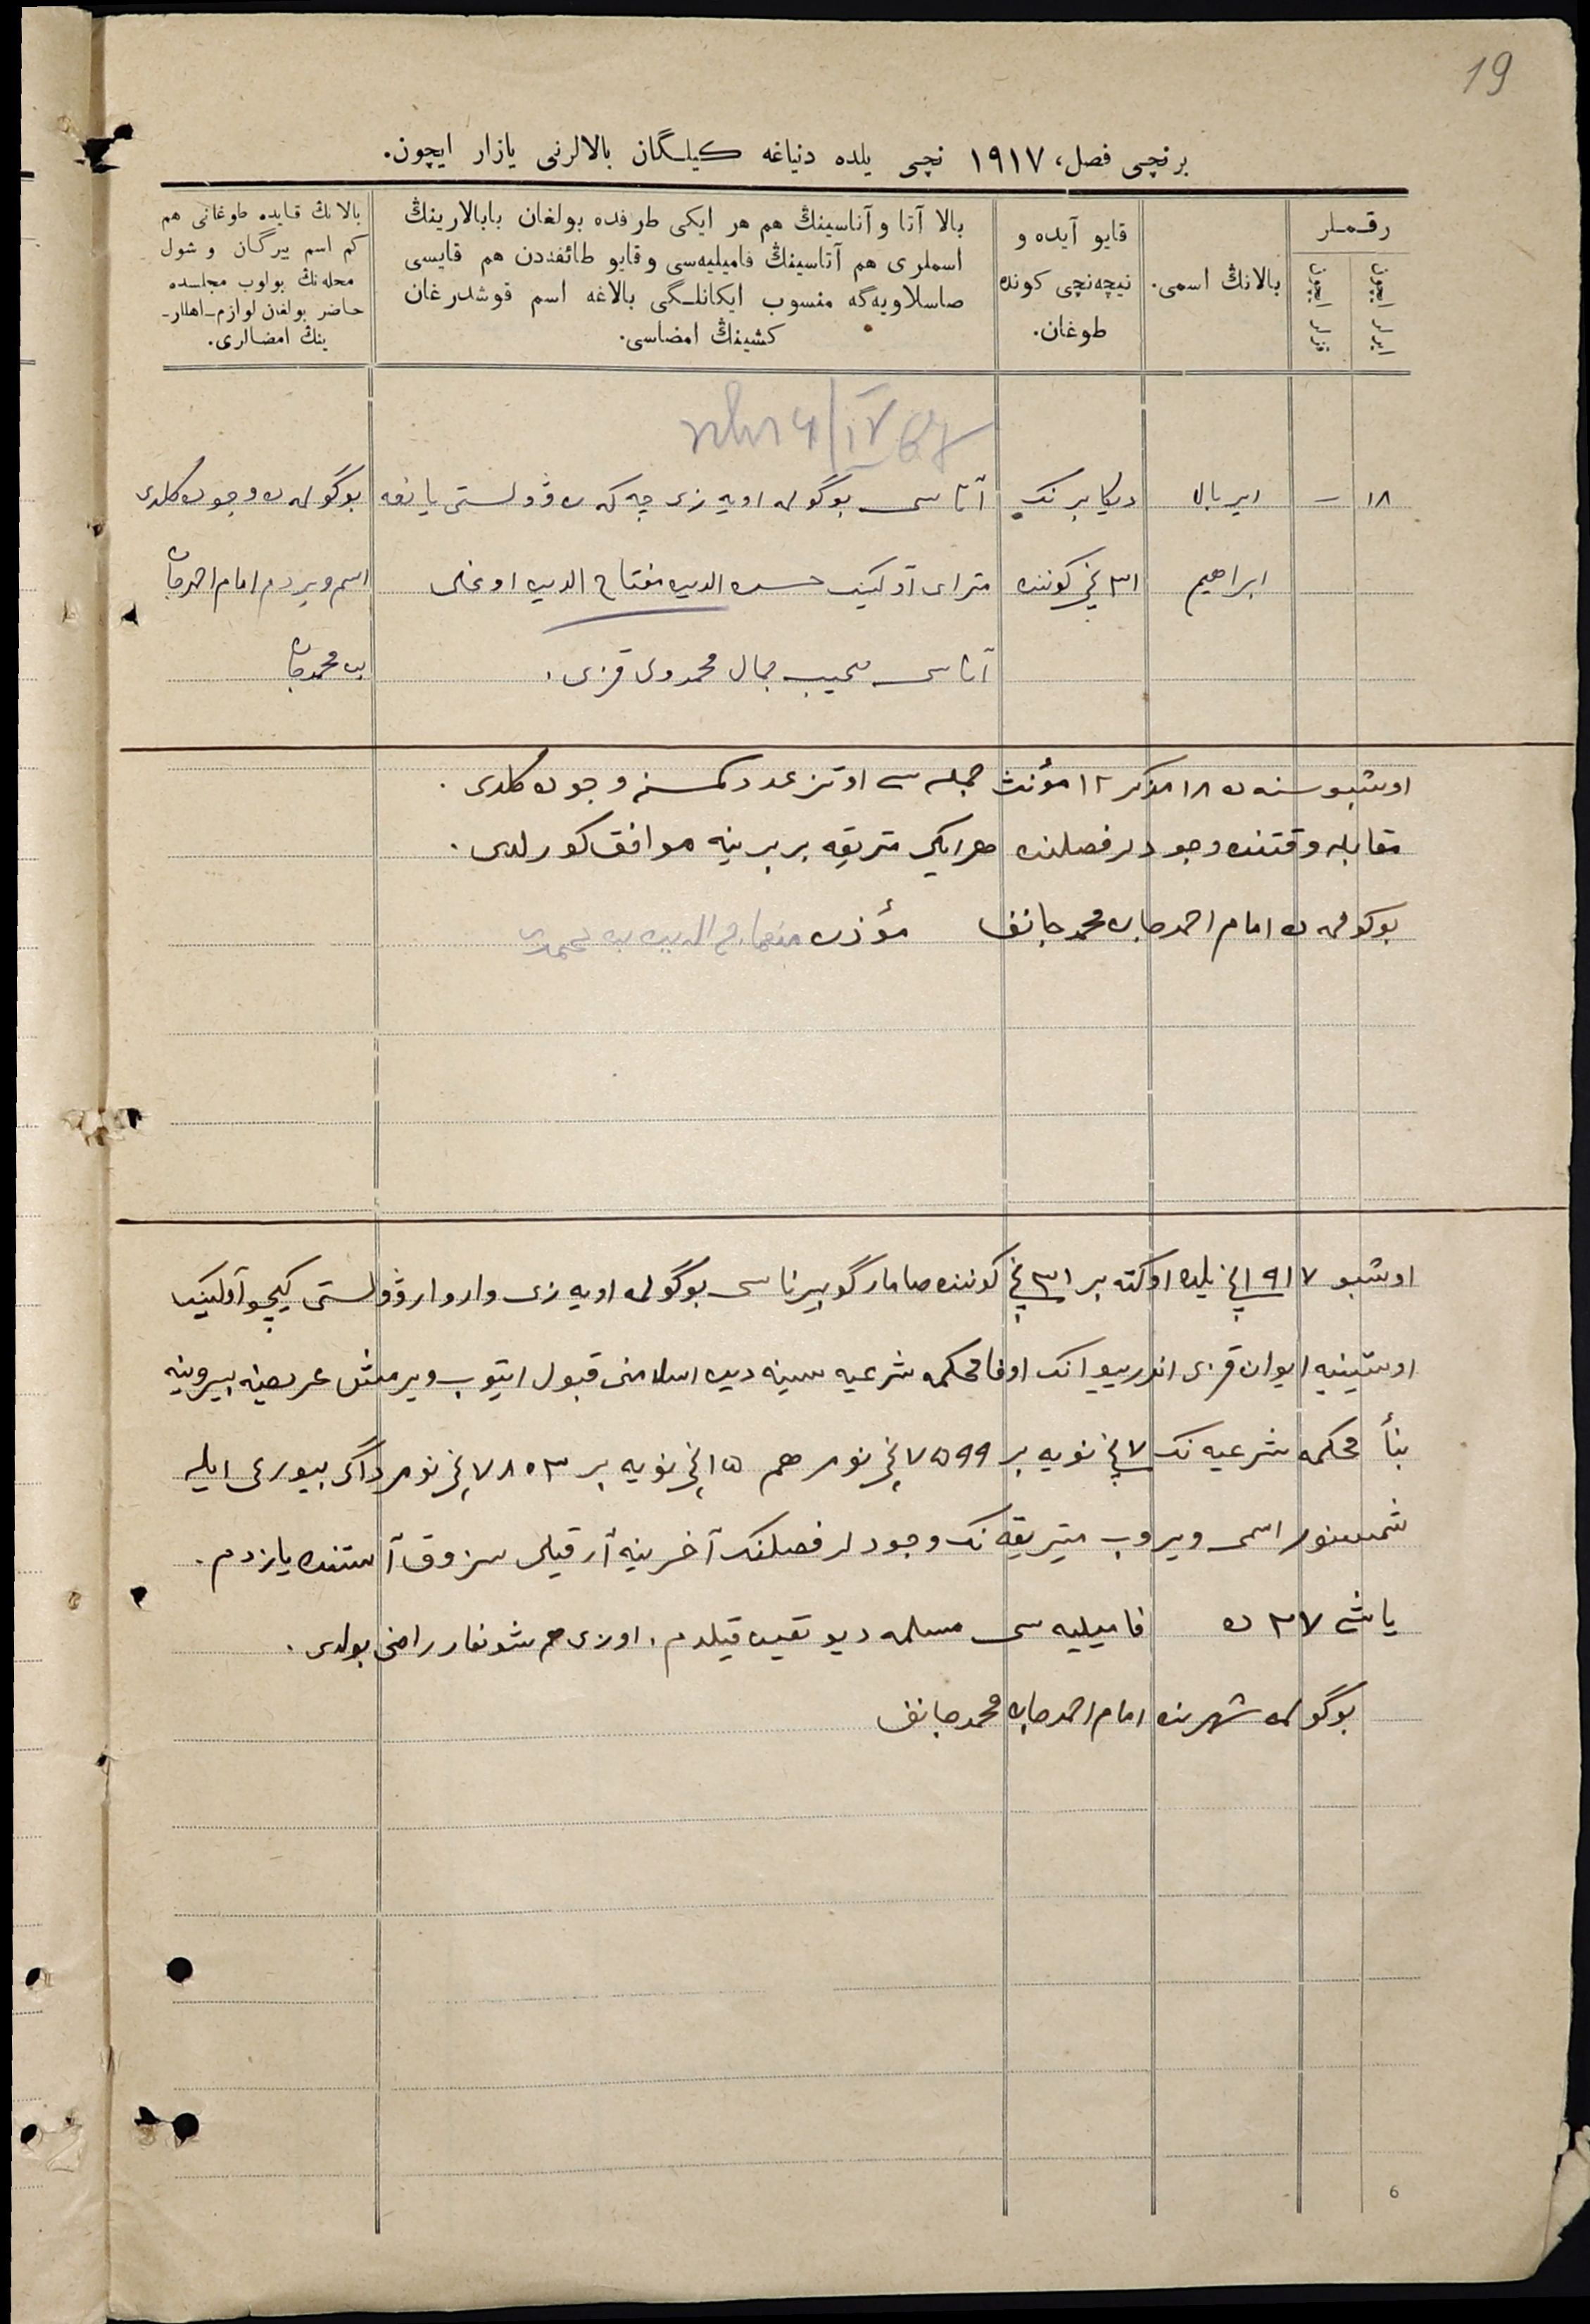 19
برنچی فصل، ١٩١٧ نچی یلده دنیاغه کیلگان بالالرنی یازار ایچون.
رقملر
ایرلر ایچون
قزلر ایچون
بالانڭ اسمی.
قایو آیده و
نیچه‌نچی کونده
طوغان.
بالا آتا و آناسینڭ هم هر ایکی طرفده بولغان بابالارینڭ
اسملری هم آتاسینڭ فامیلیه‌سی و قایو طائفه‌دن هم قایسی
صاسلاویه‌گه منسوب ایکانلگی بالاغه اسم قوشدرغان
کشینڭ امضاسی.
بالانڭ قایده طوغانی هم
کم اسم بیرگان و شول
محله‌نڭ بولوب مجلسده
حاضر بولغان لوازم-اهللار-
ینڭ امضالری.
١٨
—
ایر بالا
دیکابرنک
آتاسی بوگولمه اویه زی چه که ن وولستی یانغه
بوگولمه ده وجوده کلدی
ابراهیم
٣١ نچی کوننده
مترای آولینک حسن الدین مفتاح الدین اوغلی
اسم ویردم امام احمدجان
آناسی محیب جمال محمدولی قزی.
بن محمدجان
اوشبو سنه ده ١٨ مذکر ١٢ مؤنث جمله سی اوتز عدد کمسنه وجوده کلدی.
مقابله وقتنده وجودلر فصلنده هر ایکی متریقه بر برینه موافق کورلدی.
بوگولمه ده امام احمدجان محمدجانف مؤذن
اوشبو ١٩١٧ نچی یلده اوکته بر ٣١ نچی کوننده صامار گوبیرناسی بوگولمه اویه زی واروار وولستی کیچو آولینک
اوستینیه ایوان قزی اندرییوانک اوفا محکمه شرعیه سینه دین اسلامنی قبول ایتوب ویرمش عریضه بیروینه
بنأ محکمه شرعیه نک ٧ نچی نویه بر ٧٥٩٩ نچی نومر هم ١٥ نچی نویه بر ٧٨٠٣ نچی نومرداگی بیورغی ایله
شمسنور اسمی ویروب میتریقه نک وجودلر فصلنک آخرینه آرقیلی سزوق آستنده یازدم.
یاشی ٢٧ ده فامیلیه سی مسلمه دیو تعیین قیلدم. اوزی هم شونغار راضی بولدی.
بوگولمه شهرنده امام احمدجان محمدجانف
6